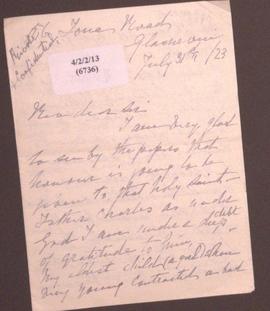 Private &
Confidential
Iona Road
Glasnevin
4/2/2/13
(6736)
July 31st /23
Rev dear Sir
I am very glad
to see by the papers that
honour is going to be
given to that holy Saint
Father Charles as under
God I am under a deep debt
of gratitude to him.
My eldest child (a girl) when
very young contracted a bad